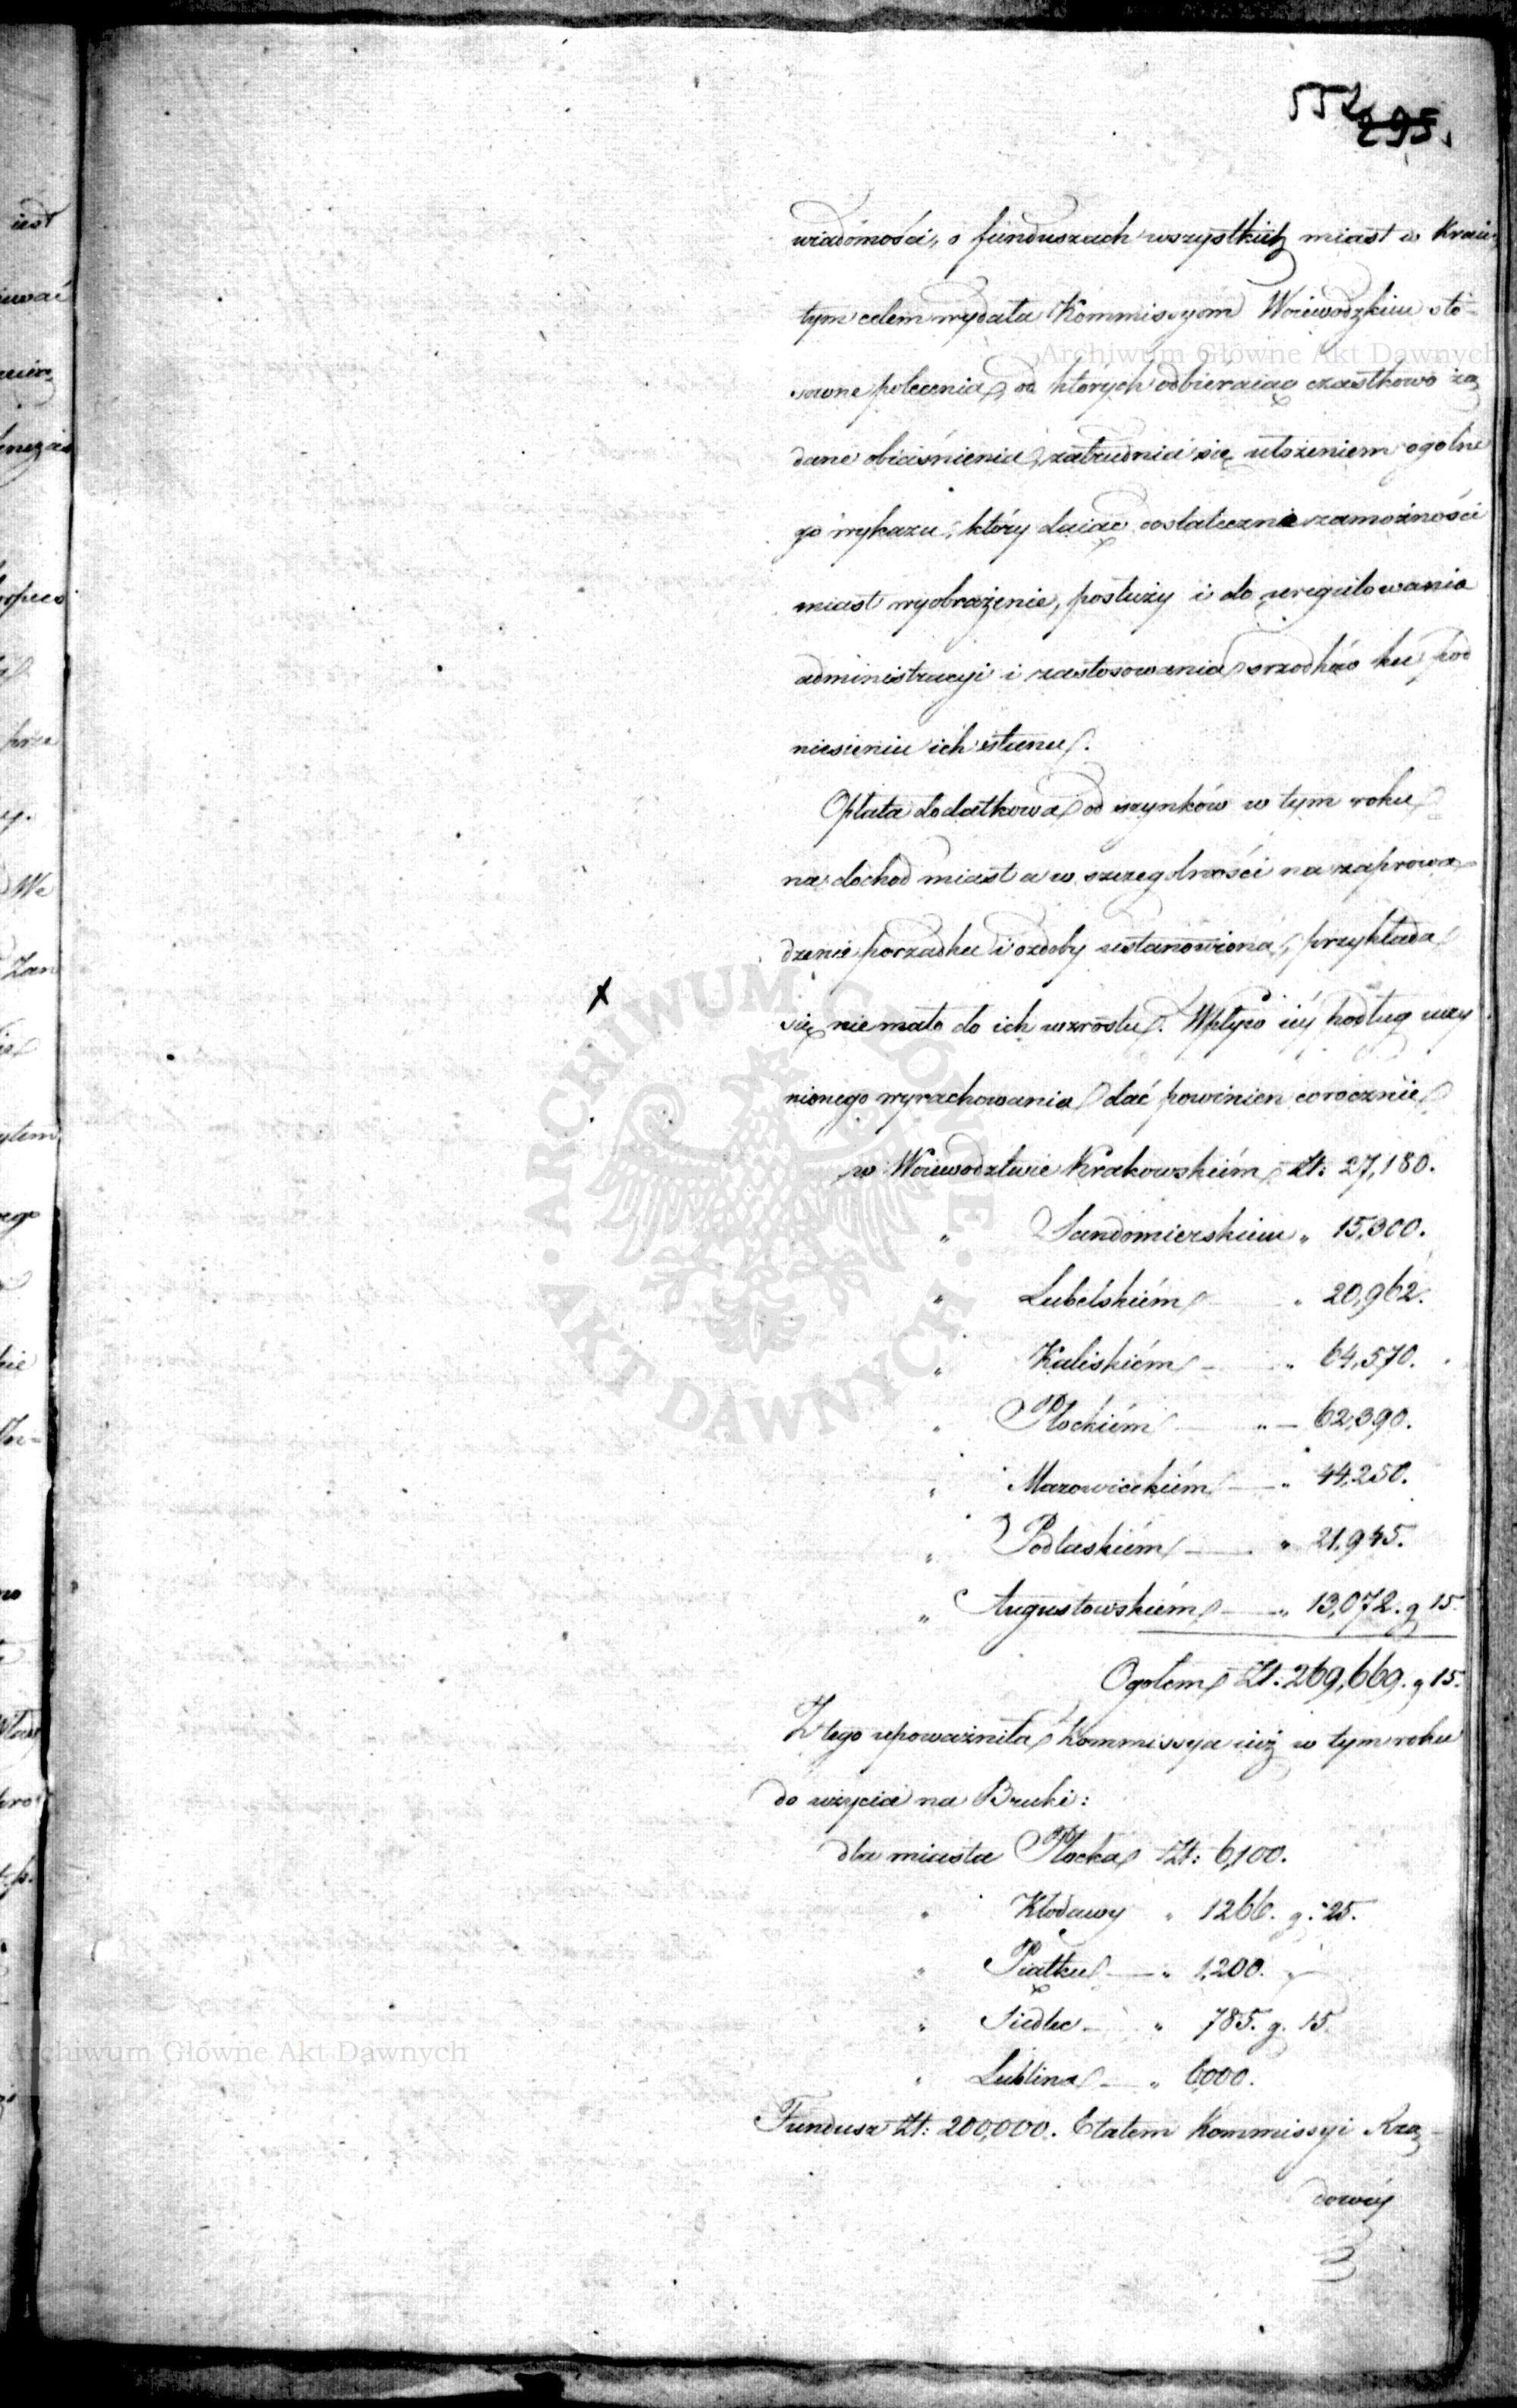 552
295.
wiadomości, o funduszach wszystkich miast w Kraiu,
tym celem wydała Kommissyom Woiewodzkim sto-
sowne polecenia, od których odbieraiąc cząstkowo żą
dane obiaśnienia, zatrudnia się ułożeniem ogolne
go wykazu, który daiąc dostateczne zamożności
miast wyobrażenie, posłuży i do uregulowania
administracyi i zastosowania srzodków ku pod
niesieniu ich stanu.
Opłata dodatkowa od szynków w tym roku
na dochod miast a w szczegolności na zaprowa
dzenie porządku i ozdoby ustanowiona, przykłada
się nie mało do ich wzrostu. Wpływ iéy podług uczy
nionego wyrachowania dać powinien corocznie
w Woiewodztwie Krakowskiém Zł: 27,180.
" Sandomierskiem " 15,300.
" Lubelskiém " 20,962.
" Kaliskiém — " 64,570.
" Płockiém — " — 62,390.
" Mazowieckiém — " 44,250.
" Podlaskiém — " 21,945.
" Augustowskiém — " 13,072. g 15.
Ogołem Zł. 269,669. g 15.
Z tego upoważniła Kommissya iuż w tym roku
do użycia na Bruki:
dla miasta Płocka Zł: 6,100.
" Kłodawy " 1266. g. 25.
" Piątku — " 1,200. —
" Siedlec — " 785. g. 15.
" Lublina — " 6000.
Fundusz Zł: 200,000. Etatem Kommissyi Rzą-
dowéy
iest
prze
We
Zan
ego
Archiwum Główne Akt Dawnych
ARCHIWUM GŁÓWNE • AKT DAWNYCH •
Archiwum Główne Akt Dawnych